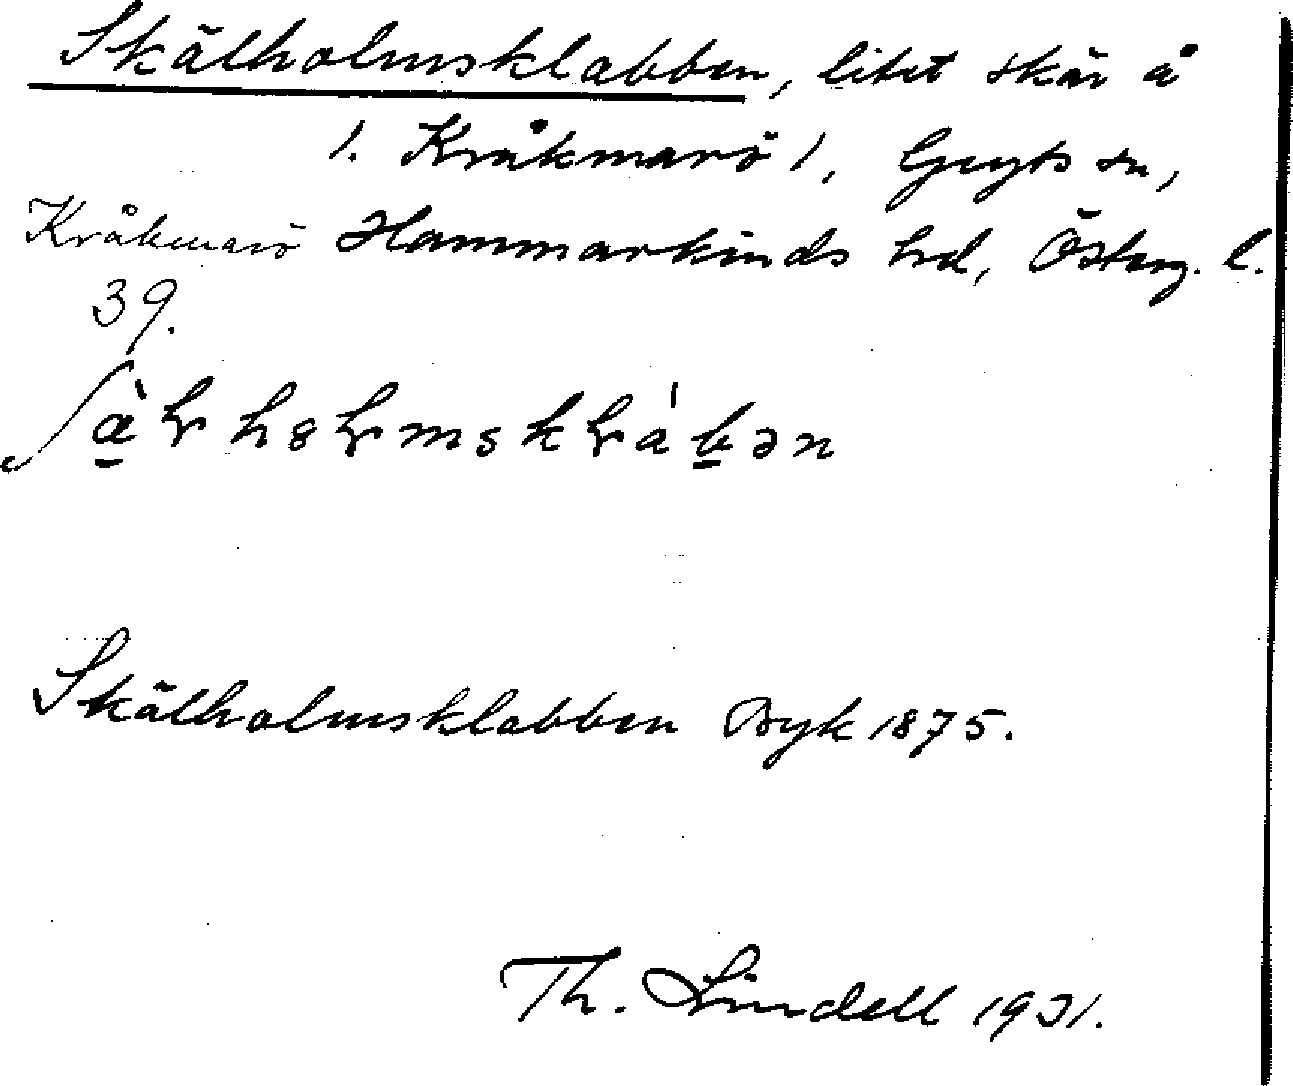 Skälholmsklabben, litet skär å
1. Kråkmarö 1, Gryts sn,
Kråkmarö Hammarkinds hd, Österg. l.
39.
Skälholmsklabben Byk 1875.
Th. Lindell 1931.